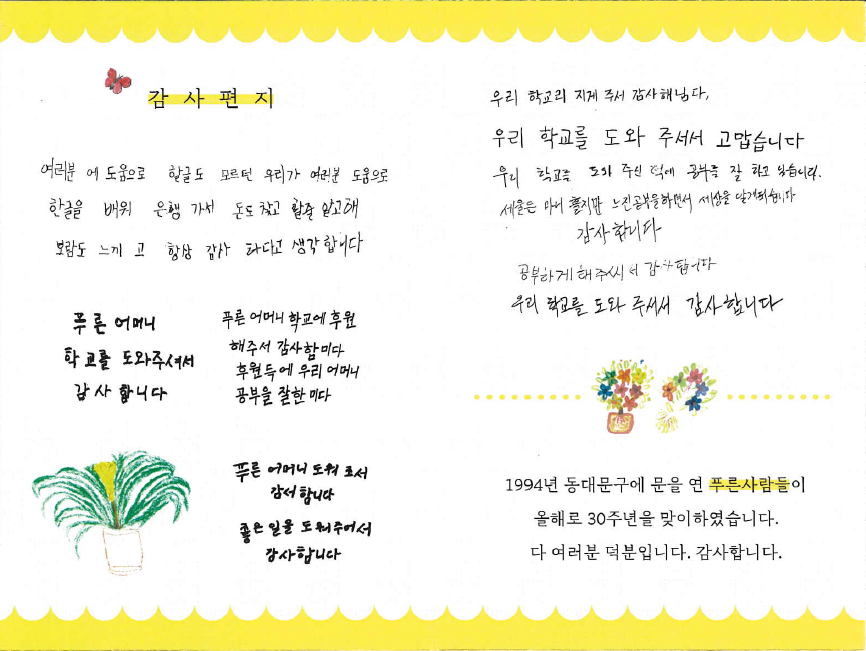 감사편지
여러분 에 도움으로 한글도 모르던 우리가 여러분 도움으로
한글을 배워 은행 가서 돈도 찾고 할줄 알고해
보람도 느끼 고 항상 감사 하다고 생각합니다
푸른 어머니
학교를 도와주셔서
감사 합니다
푸른 어머니 학교에 후원
해주서 감사함미다
후원득에 우리 어머니
공부을 잘한미다
푸른 어머니 도워 조서
감서합니다
좋은 일을 도워주어서
강사합니다
우리 학교리 지게 주서 감사해님다,
우리 학교를 도와 주서서 고맙습니다
우리 학교를 도와 주신 덕에 공부를 잘 하고 있습니다.
세울은 마니 흘지만 느진공부을하면서 세상을 알게되습니다
감사합니다
공부하게 해주씨서 감사합니다
우리 학교를 도와 주서서 감사합니다
1994년 동대문구에 문을 연 푸른사람들이
올해로 30주년을 맞이하였습니다.
다 여러분 덕분입니다. 감사합니다.